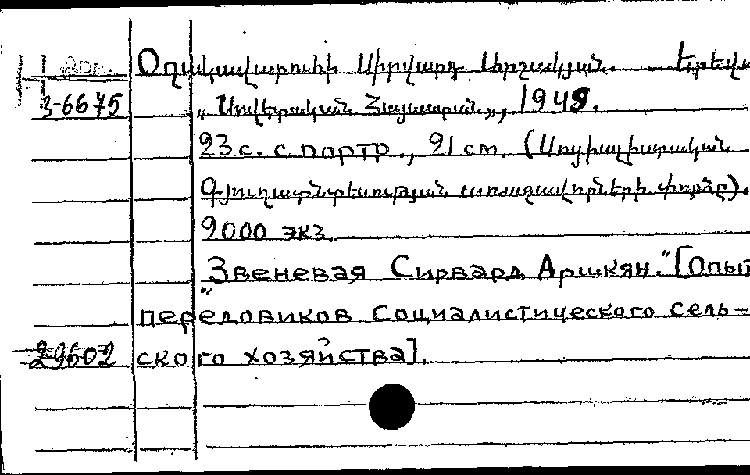 Օղակավարուհի Սիրվարդ Արշակյան. Երևան
3-6675 „Սովետական Հայաստան“, 1949.
23 с. с портр., 21 см. (Սոցիալիստական
Գյուղատնտեսության առաջավորների փորձը).
9000 экз.
„Звеневая Сирвард Аршкян.“ [Опыт
передовиков социалистического сель-
29602 ского хозяйства].